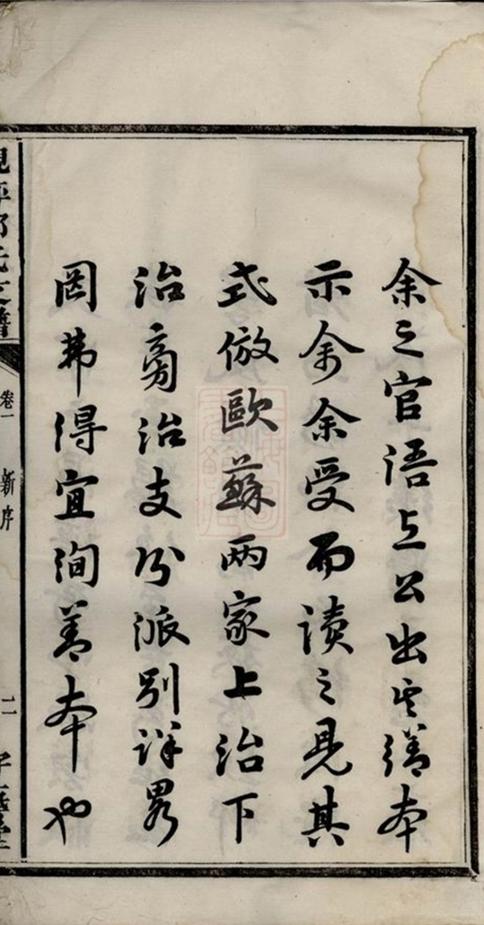 余之官語公出其繕本
示余余受而讀之見其
式倣歐蘇兩家上治下
治旁治支分派別詳畧
罔弗得宜洵善本也
氏支譜
卷一 新序
二
堂